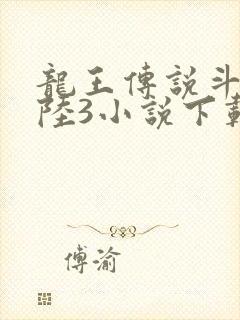 龍王傳說斗
陸3小說下載
傅渝